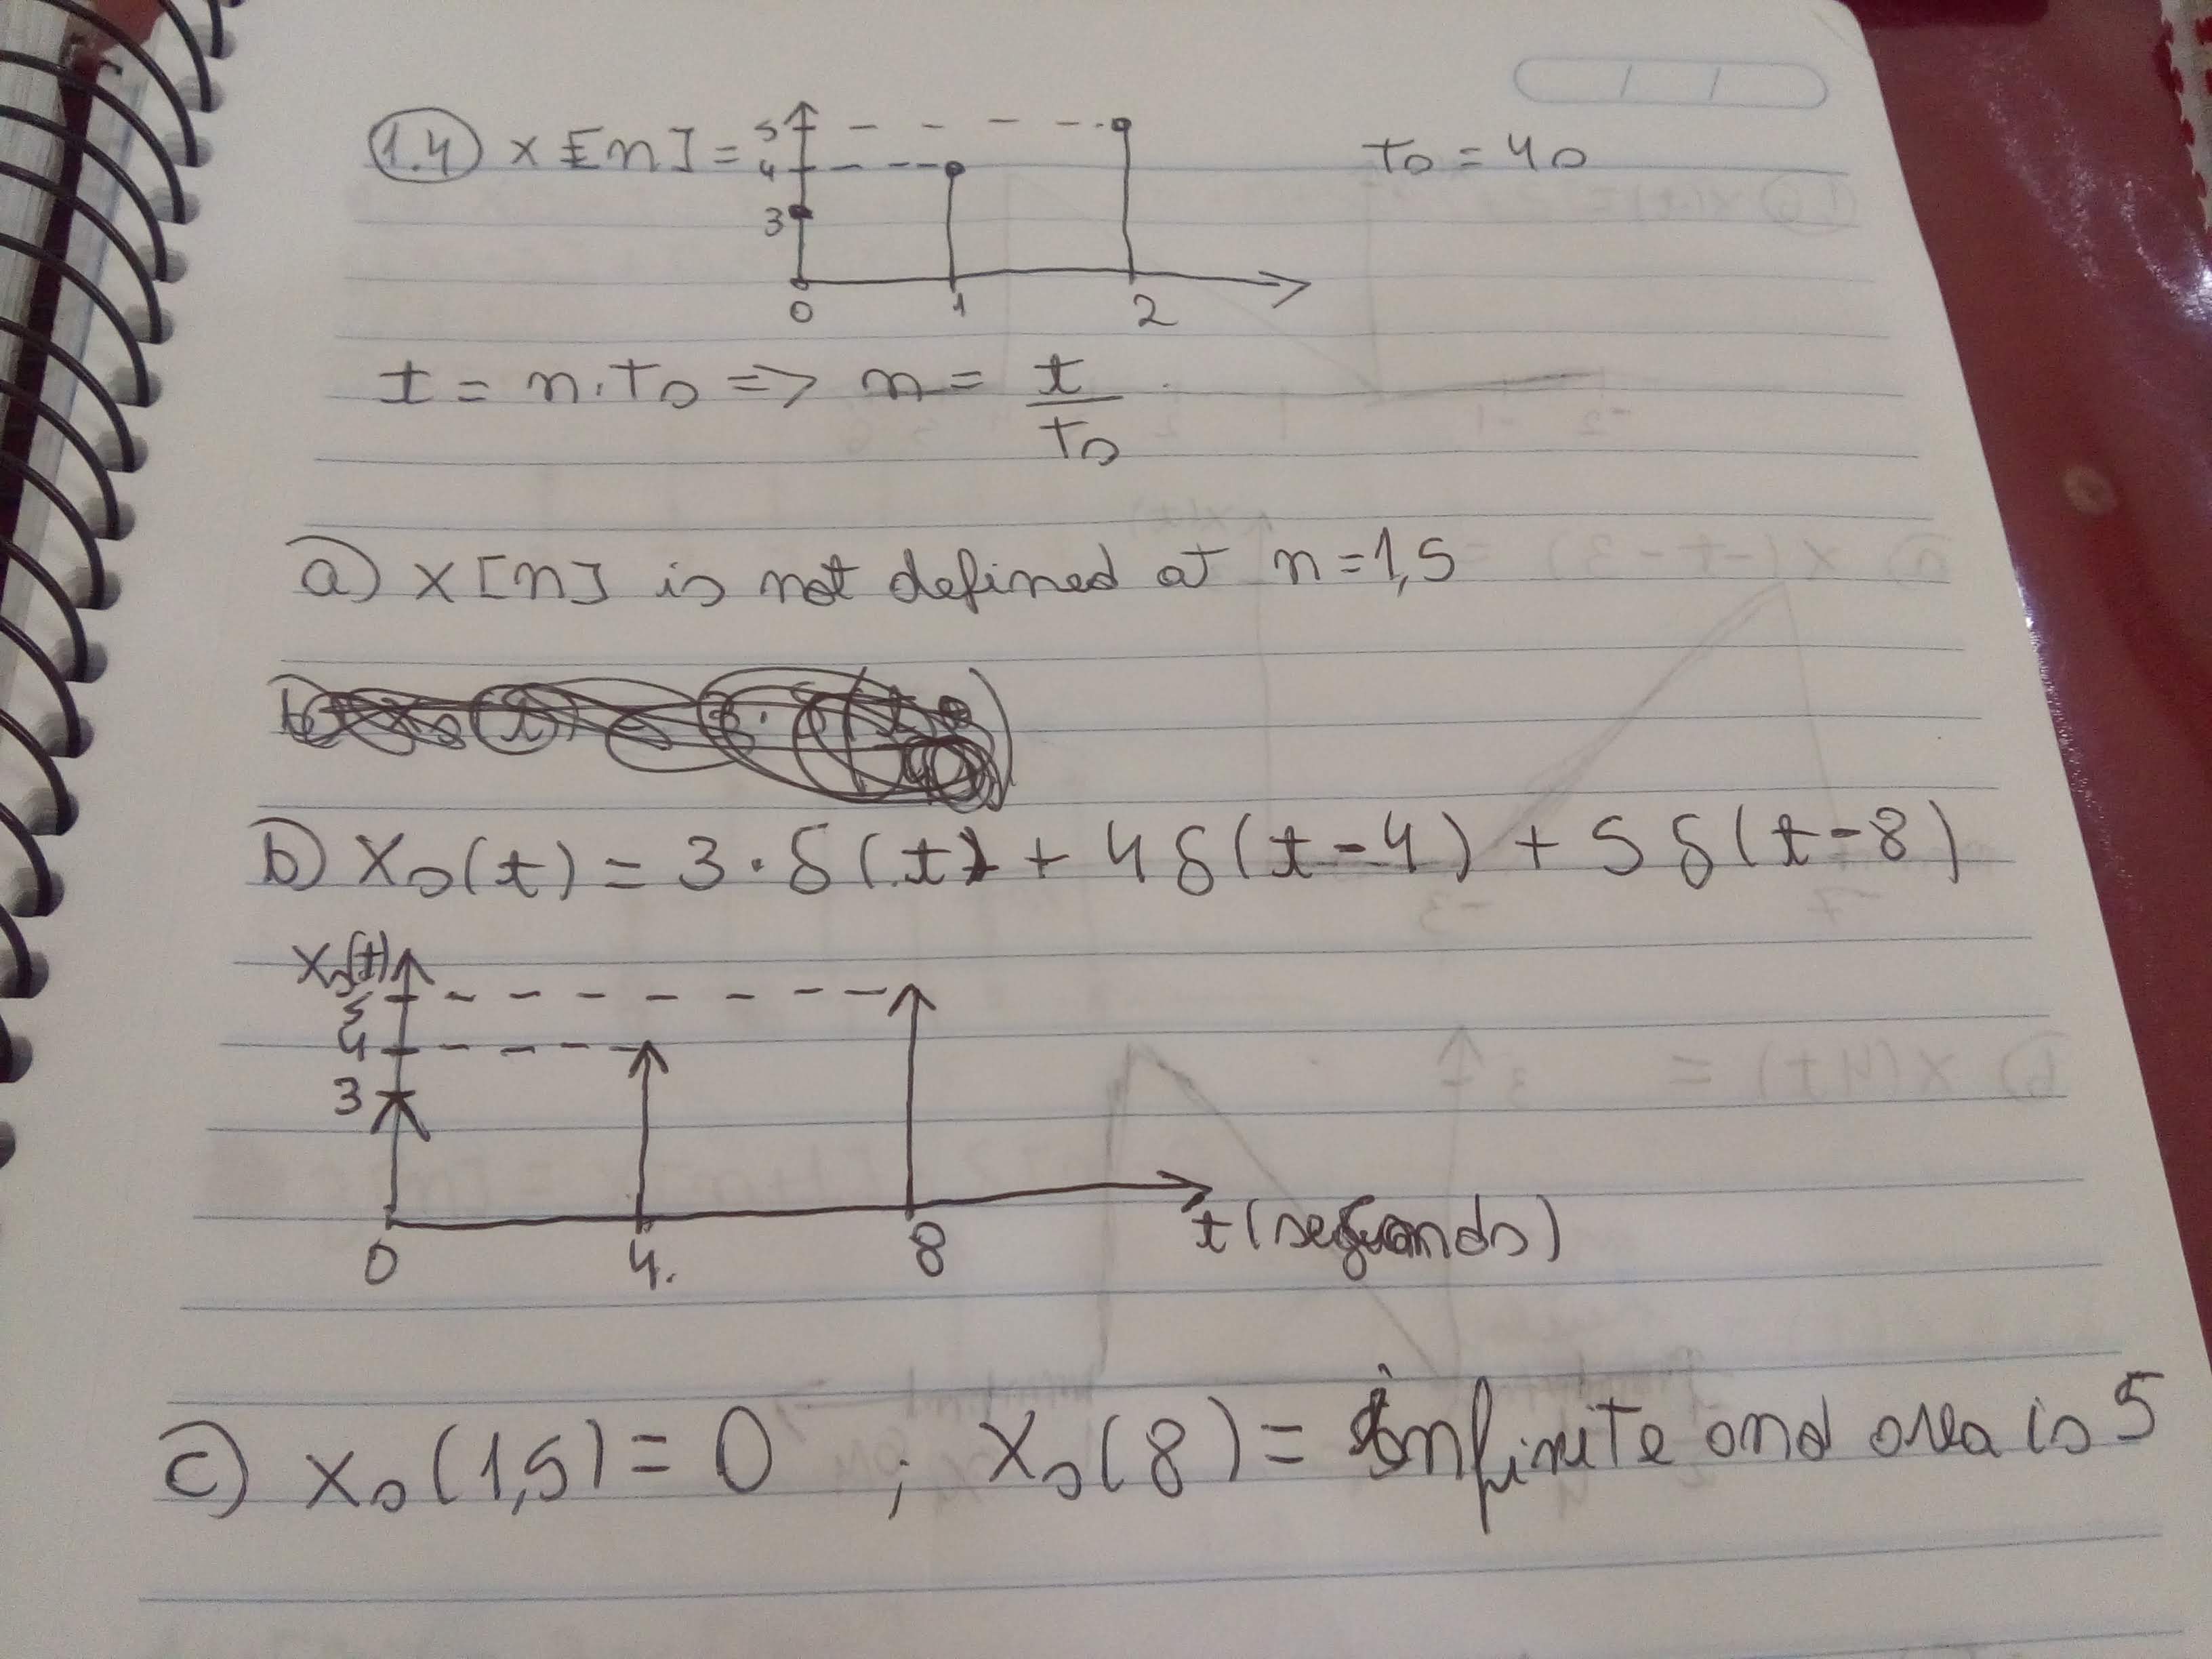 1.4 x[n] = 5 4 3 0 1 2 T₀ = 4s
t = n.Ts => n = t/Ts
a) x[n] is not defined at n=1,5
b) Xs(t) = 3.δ(t) + 4δ(t-4) + 5δ(t-8)
Xs(t)
5
4
3
0 4 8 t(seconds)
c) Xs(1,5) = 0 ; Xs(8) = infinite and area is 5